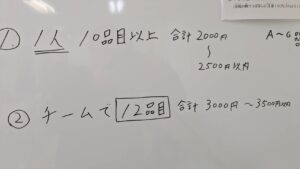 ① 1人 10品目以上 合計 2000円
〜
2500円以内
A〜G
② チームで 12品目 合計 3000円 〜3500円以内